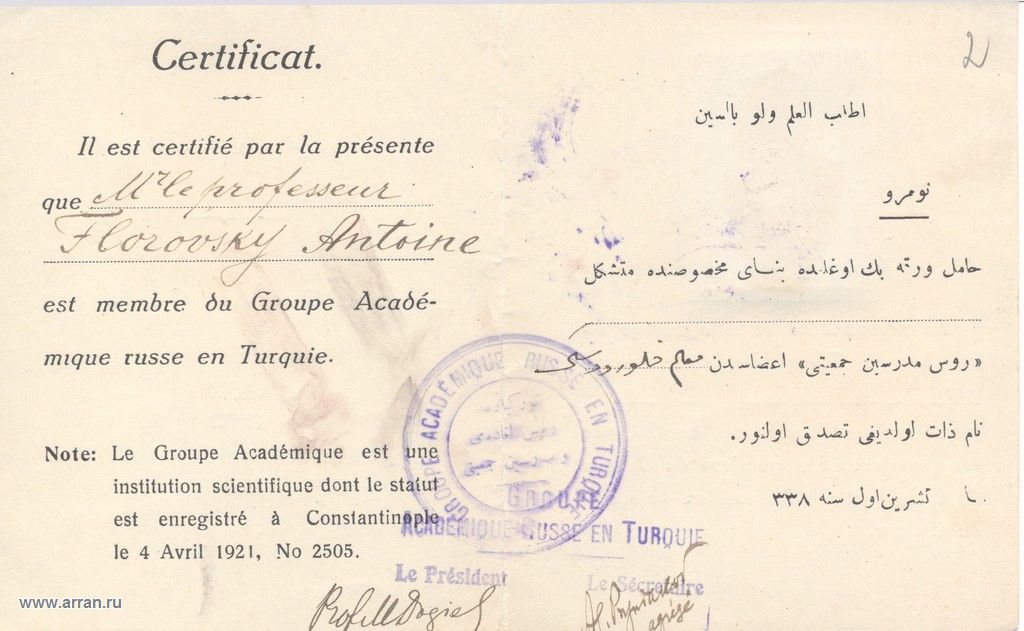 Certificat.
Il est certifié par la présente
que Mr le professeur
Florovsky Antoine
est membre du Groupe Acadé-
mique russe en Turquie.
Note: Le Groupe Académique est une
institution scientifique dont le statut
est enregistré à Constantinople
le 4 Avril 1921, No 2505.
2
اطلب العلم ولو بالسين
نومرو
حامل ورقه بك اوغلنده بنسای مخصوصنده متشكل
«روس مدرسين جمعيتی» اعضاسدن معلم فلوروسكی
نام ذات اولديغی تصديق اولنور.
تشرين اول سنه ٣٣٨
GROUPE ACADÉMIQUE RUSSE EN TURQUIE
GROUPE
ACADÉMIQUE RUSSE EN TURQUIE
Le Président
Le Sécretaire
Prof M Dogiel
agrégé
www.arran.ru